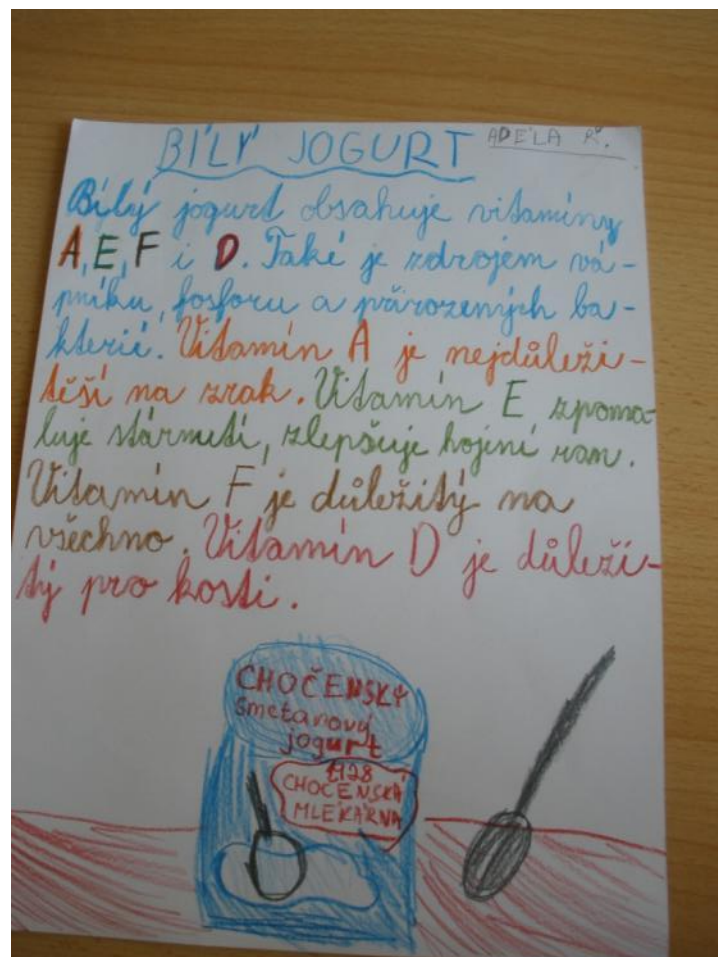 BÍLÝ JOGURT ADÉLA Ř.
Bílý jogurt obsahuje vitamíny
A, E, F i D. Také je zdrojem vá-
pníku, fosforu a přirozených ba-
kterií. Vitamín A je nejdůleži-
těší na zrak. Vitamín E zpoma-
luje stárnutí, zlepšuje hojiní ran.
Vitamín F je důležitý na
všechno. Vitamín D je důleži-
tý pro kosti.
CHOČENSKÝ
smetanový
jogurt
1928
CHOCENSKÁ
MLÉKÁRNA